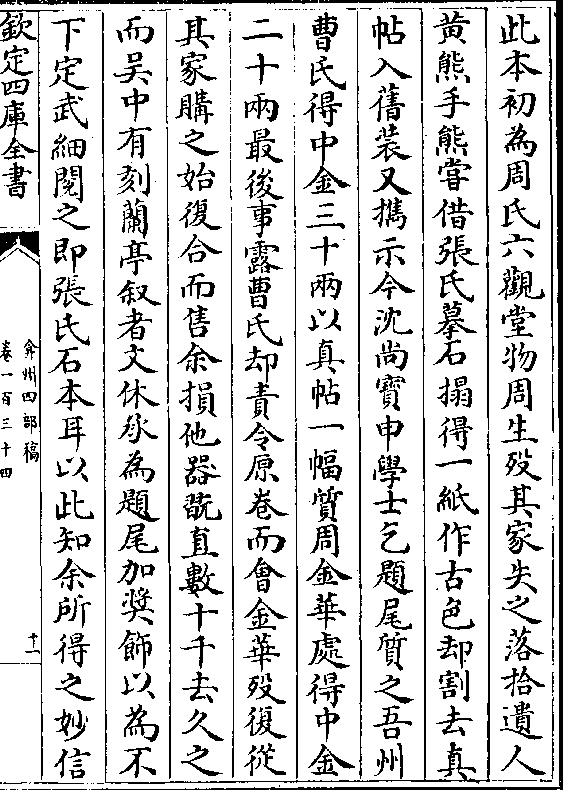 此本初為周氏六觀堂物周生歿其家失之落拾遺人
黃熊手熊嘗借張氏摹石搨得一紙作古色却割去真
帖入舊裝又攜示今沈尚寶申學士乞題尾質之吾州
曹氏得中金三十兩以真帖一幅質周金華處得中金
二十兩最後事露曹氏却責令原卷而會金華歿復從
其家購之始復合而售余損他器翫直數十千去久之
而吳中有刻蘭亭叙者文休承為題尾加奬飾以為不
下定武細閱之即張氏石本耳以此知余所得之妙信
欽定四庫全書
弇州四部稿
卷一百三十四
十二